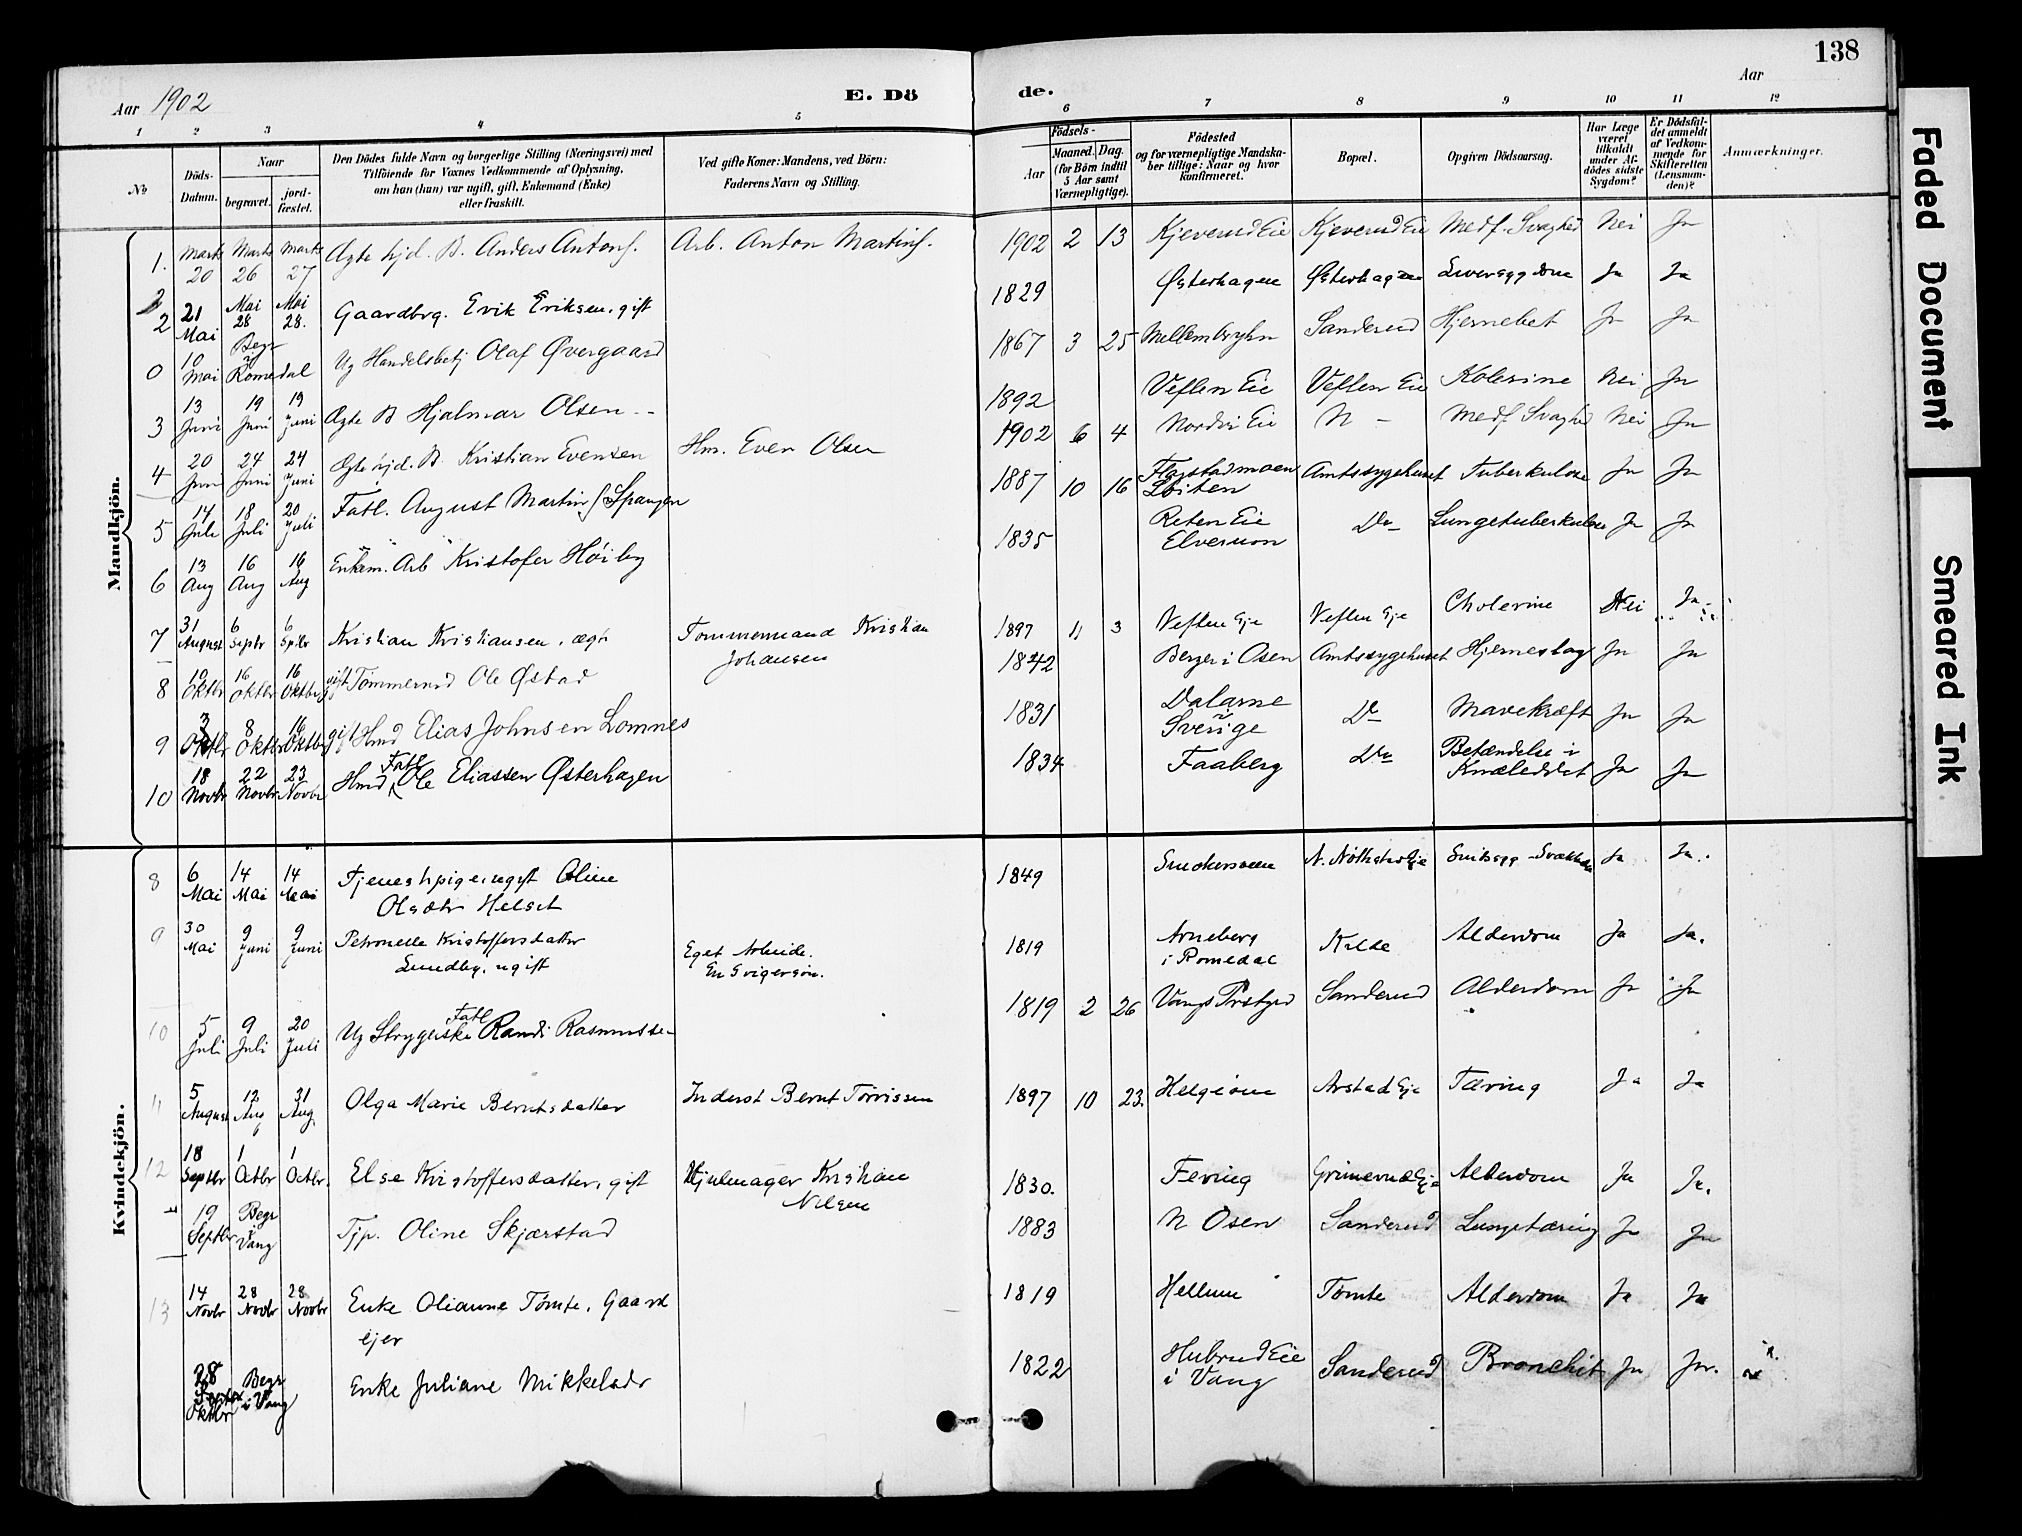 138
Aar 1902
E. Dö
de.
Aar
1 2 3 4 5 6 7 8 9 10 11 12
No
Döds-Datum.
Naar
begravet.
jord-fæstet.
Den Dödes fulde Navn og borgerlige Stilling (Næringsvei) med
Tilföiende for Voxnes Vedkommende af Oplysning,
om han (hun) var ugift, gift, Enkemand (Enke)
eller fraskilt.
Ved gifte Koner: Mandens, ved Börn:
Faderens Navn og Stilling.
Födsels-
Aar
Maaned. Dag.
(for Börn indtil
5 Aar samt
Værnepligtige).
Födested
og for værnepligtige Mandska-
ber tillige: Naar og hvor
konfirmeret.
Bopæl.
Opgiven Dödsaarsag.
Har Læge
været
tilkaldt
under Af-
dödes sidste
Sygdom?
Er Dödsfal-
det anmeldt
af Vedkom-
mende for
Skifteretten
(Lensman-
den)?
Anmærkninger.
Mandkjön.
1. Marts 20 Marts 26 Marts 27 Ægte hjd. B. Anders Antons. Arb. Anton Martins. 1902 2 13 Kjeverud Eie Kjeverud Eie Medf. Svaghed Nei Ja
2 21 Mai Mai 28 Mai 28. Gaardbrg. Erik Eriksen, gift 1829 Østerhagen Østerhagen Ja Ja
0 10 Mai Begr i Romedal Ug Handelsbetj Olaf Øvergaard 1867 3 25 Sanderud Ja Ja
3 13 Juni 19 Juni 19 Juni Ægte B Hjalmar Olsen 1892 Veflen Eie Veflen Eie Kolerine Nei Ja
4 20 Juni 24 Juni 24 Juni Ægte hjd. B. Kristian Evensen Hm. Even Olsen 1902 6 4 Nordvi Eie N - Medf. Svaghed Nei Ja
5 14 Juli 18 Juli 20 Juli Fatl. August Martins. Spangen 1887 10 16 Flagstadmoen Løiten Amtssygehuset Tuberkulose Ja Ja
6 13 Aug 16 Aug 16 Aug Enkem. Arb Kristofer Høiby 1835 Reten Eie Elverum Do Lungetuberkulose Ja Ja
7 31 August 6 Septbr 6 Sptbr Kristian Kristiansen, ægte Tømmermand Kristian
Johansen 1897 11 3 Veflen Eje Veflen Eje Cholerine Nei Ja
8 10 Oktbr 16 Oktbr 16 Oktbr gift Tømmermd Ole Østad 1842 Berger i Osen Amtssygehuset Hjerneslag Ja Ja
9 3 Oktbr 8 Oktbr 16 Oktbr gift Hmd Elias Johnsen Lomnes 1831 Dalarne i Sverige Do Mavekræft Ja Ja
10 18 Novbr 22 Novbr 23 Novbr Hmd Fatl Ole Eliassen Østerhagen 1834 Faaberg Do Betændelse i Knæleddet Ja Ja
Kvindekjön.
8 6 Mai 14 Mai 14 Mai Tjenestpige, ugift Oline
Olsdtr Helset 1849 Ja Ja
9 30 Mai 9 Juni 9 Juni Petronelle Kristoffersdatter
Lundby, ugift Eget Arbeide.
En Svigersøn. 1819 Arneberg
i Romedal Kilde Alderdom Ja Ja.
10 5 Juli 9 Juli 20 Juli Ug Strygerske Fatl Randi Rasmussen 1819 2 26 Vangs Prstgjd Sanderud Alderdom Ja Ja
11 5 August 12 Aug 31 Aug. Olga Marie Berntsdatter Inderst Bernt Tørrissen 1897 10 23. Arstad Eje Tæring Ja Ja
12 18 Septbr 1 Octbr 1 Octbr. Else Kristoffersdatter, gift Hjulmager Kristian
Nilsen 1830. Fering Grimerud Eje Alderdom Ja Ja.
19 Septbr Begr i Vang Tjp. Oline Skjærstad 1883 N Osen Sanderud Lungetæring Ja Ja
13 14 Novbr 28 Novbr 28 Novbr Enke Olianne Tomte, Gaard
ejer 1819 Hellum Tomte Alderdom Ja Ja
28 Oktbr Begr i Vang Enke Juliane Mikkelsdr 1822 Hubrud Eie
i Vang Sanderud Bronchit Ja Ja.
Faded Document
Smeared Ink